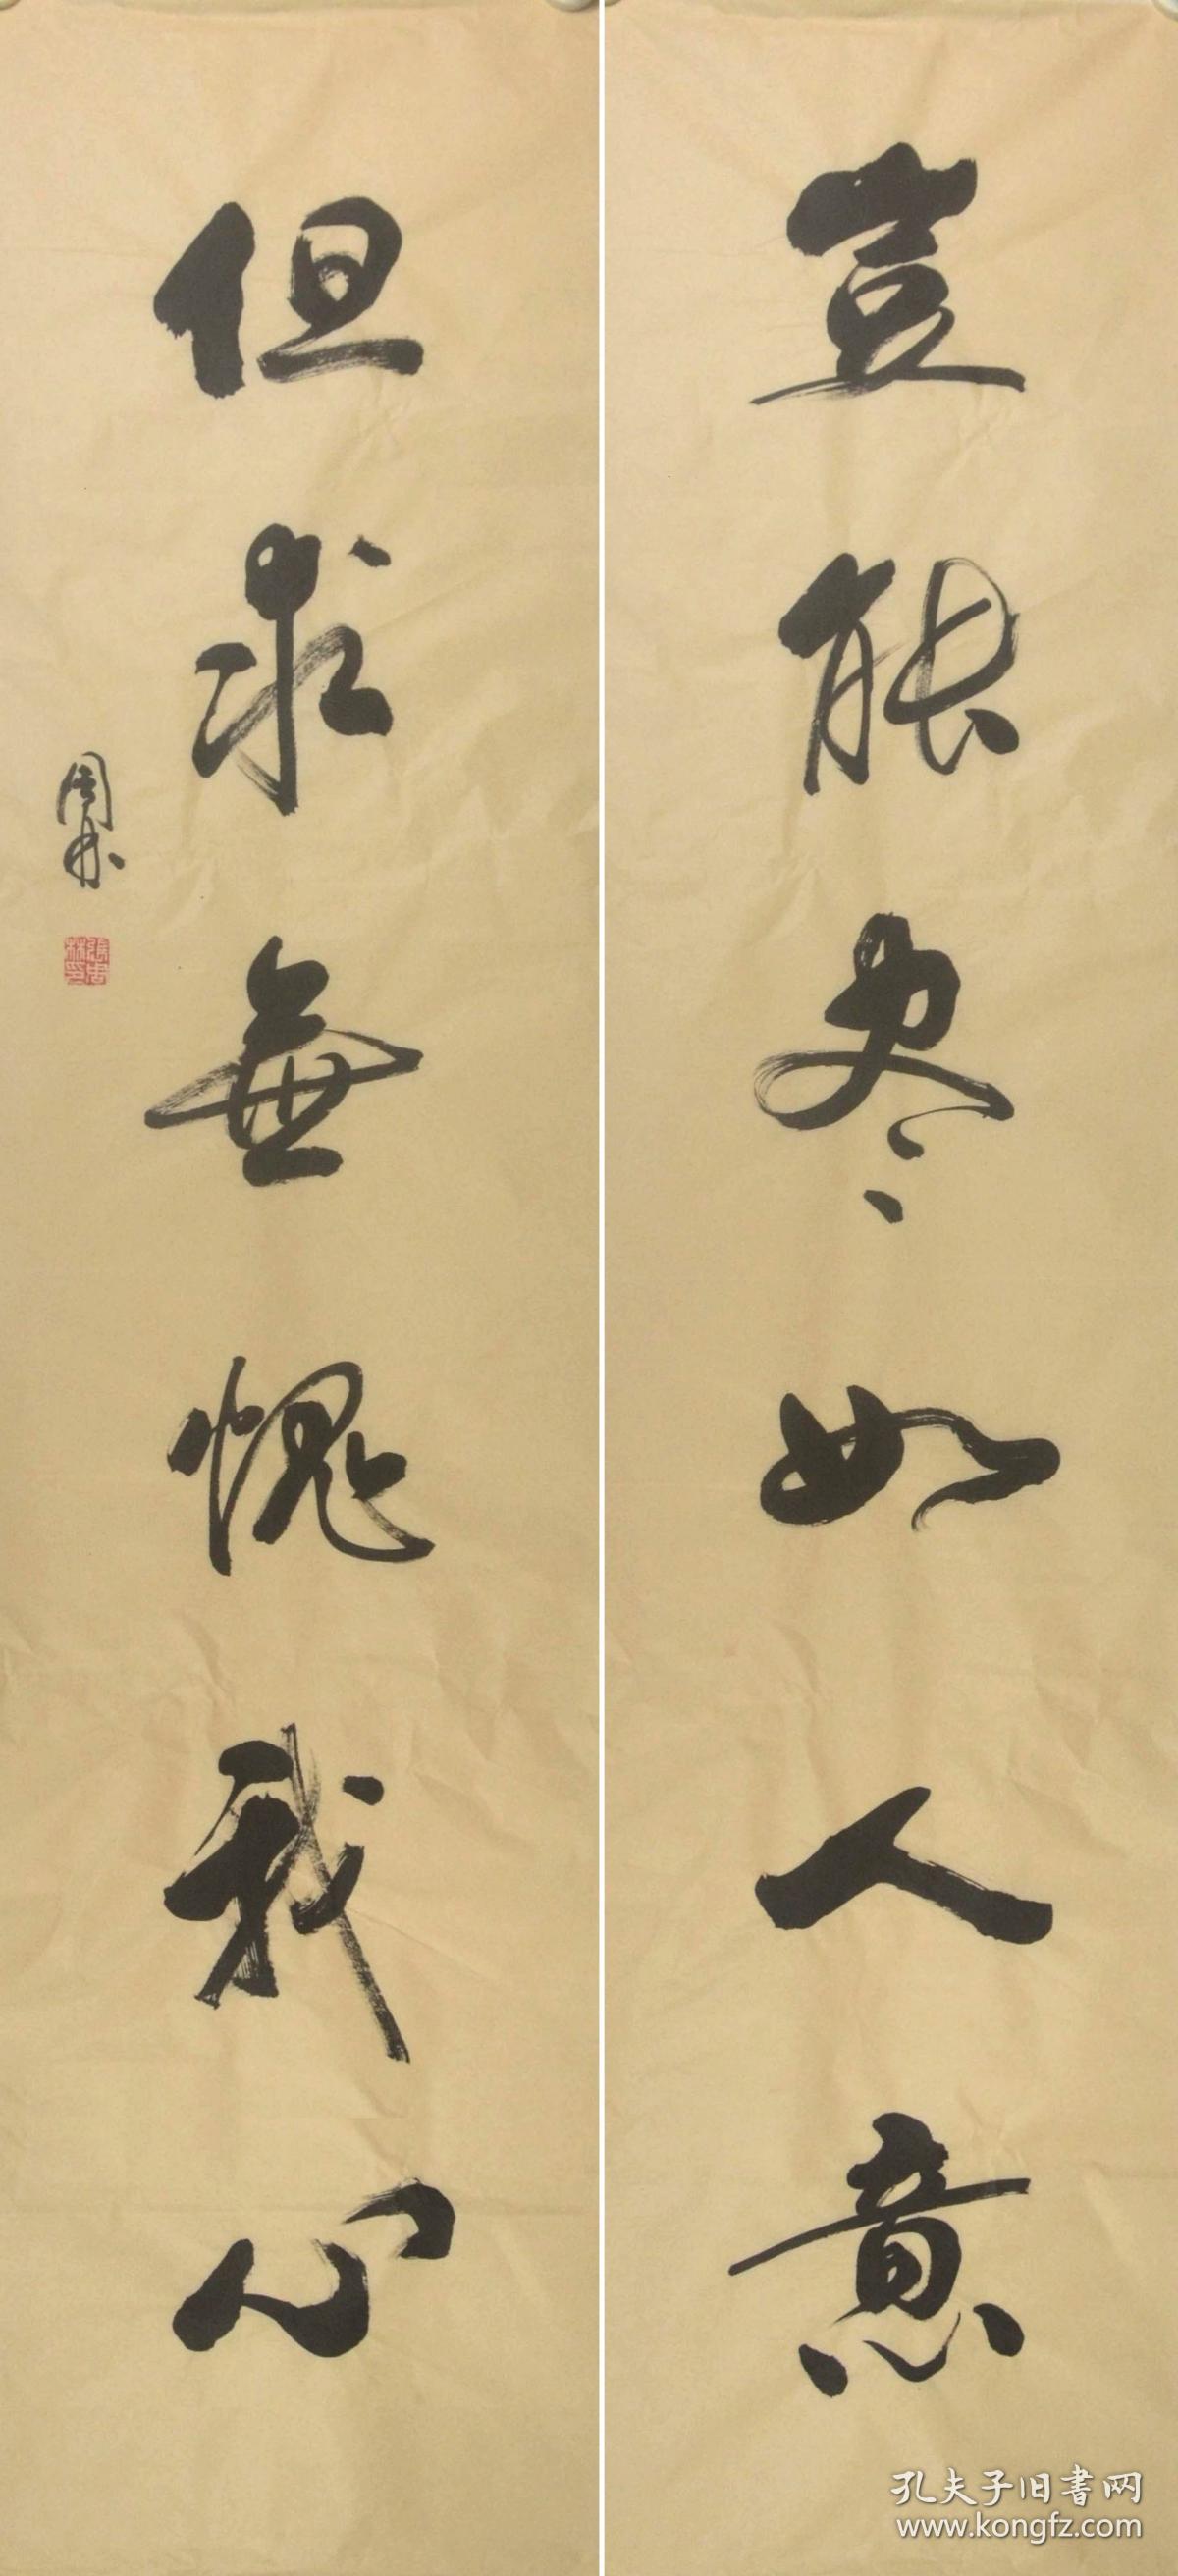 豈能尽如人意
但求無愧我心
孔夫子旧書网
www.kongfz.com